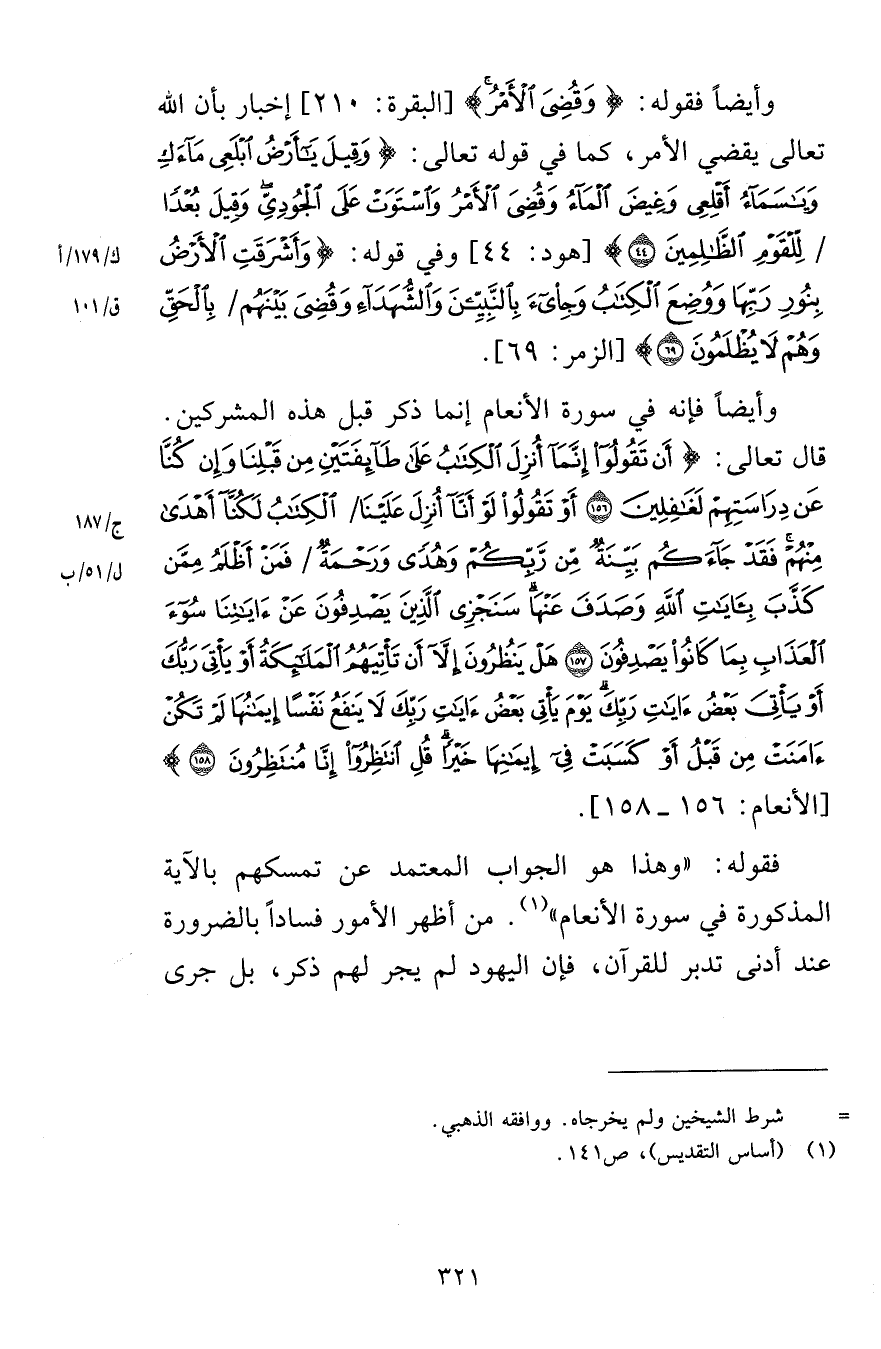 وأيضاً فقوله: ﴿ وَقُضِىَ ٱلْأَمْرُ ۚ﴾ [البقرة: ٢١٠] إخبار بأن الله
تعالى يقضي الأمر، كما في قوله تعالى: ﴿ وَقِيلَ يَٰٓأَرْضُ ٱبْلَعِى مَآءَكِ
وَيَٰسَمَآءُ أَقْلِعِى وَغِيضَ ٱلْمَآءُ وَقُضِىَ ٱلْأَمْرُ وَٱسْتَوَتْ عَلَى ٱلْجُودِىِّ ۖ وَقِيلَ بُعْدًا
/ لِّلْقَوْمِ ٱلظَّٰلِمِينَ ٤٤ ﴾ [هود: ٤٤] وفي قوله: ﴿ وَأَشْرَقَتِ ٱلْأَرْضُ ك/١٧٩/أ
بِنُورِ رَبِّهَا وَوُضِعَ ٱلْكِتَٰبُ وَجِا۟ىٓءَ بِٱلنَّبِيِّۦنَ وَٱلشُّهَدَآءِ وَقُضِىَ بَيْنَهُم / بِٱلْحَقِّ ق/١٠١
وَهُمْ لَا يُظْلَمُونَ ٦٩ ﴾ [الزمر: ٦٩].
وأيضاً فإنه في سورة الأنعام إنما ذكر قبل هذه المشركين.
قال تعالى: ﴿ أَن تَقُولُوٓا۟ إِنَّمَآ أُنزِلَ ٱلْكِتَٰبُ عَلَىٰ طَآئِفَتَيْنِ مِن قَبْلِنَا وَإِن كُنَّا
عَن دِرَاسَتِهِمْ لَغَٰفِلِينَ ١٥٦ أَوْ تَقُولُوا۟ لَوْ أَنَّآ أُنزِلَ عَلَيْنَا / ٱلْكِتَٰبُ لَكُنَّآ أَهْدَىٰ ج/١٨٧
مِنْهُمْ ۚ فَقَدْ جَآءَكُم بَيِّنَةٌ مِّن رَّبِّكُمْ وَهُدًى وَرَحْمَةٌ ۚ / فَمَنْ أَظْلَمُ مِمَّن ل/٥١/ب
كَذَّبَ بِـَٔايَٰتِ ٱللَّهِ وَصَدَفَ عَنْهَا ۗ سَنَجْزِى ٱلَّذِينَ يَصْدِفُونَ عَنْ ءَايَٰتِنَا سُوٓءَ
ٱلْعَذَابِ بِمَا كَانُوا۟ يَصْدِفُونَ ١٥٧ هَلْ يَنظُرُونَ إِلَّآ أَن تَأْتِيَهُمُ ٱلْمَلَٰٓئِكَةُ أَوْ يَأْتِىَ رَبُّكَ
أَوْ يَأْتِىَ بَعْضُ ءَايَٰتِ رَبِّكَ ۗ يَوْمَ يَأْتِى بَعْضُ ءَايَٰتِ رَبِّكَ لَا يَنفَعُ نَفْسًا إِيمَٰنُهَا لَمْ تَكُنْ
ءَامَنَتْ مِن قَبْلُ أَوْ كَسَبَتْ فِىٓ إِيمَٰنِهَا خَيْرًا ۗ قُلِ ٱنتَظِرُوٓا۟ إِنَّا مُنتَظِرُونَ ١٥٨ ﴾
[الأنعام: ١٥٦ ـ ١٥٨].
فقوله: «وهذا هو الجواب المعتمد عن تمسكهم بالآية
المذكورة في سورة الأنعام»(١). من أظهر الأمور فساداً بالضرورة
عند أدنى تدبر للقرآن، فإن اليهود لم يجر لهم ذكر، بل جرى
= شرط الشيخين ولم يخرجاه. ووافقه الذهبي.
(١) (أساس التقديس)، ص١٤١.
٣٢١